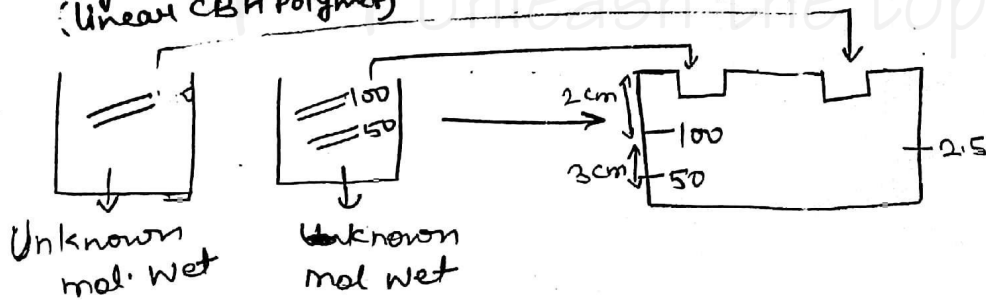 (Linear CBH Polymer)
100
50
2 cm
100
3 cm
50
2.5
Unknown
mol. Wet
Unknown
mol Wet